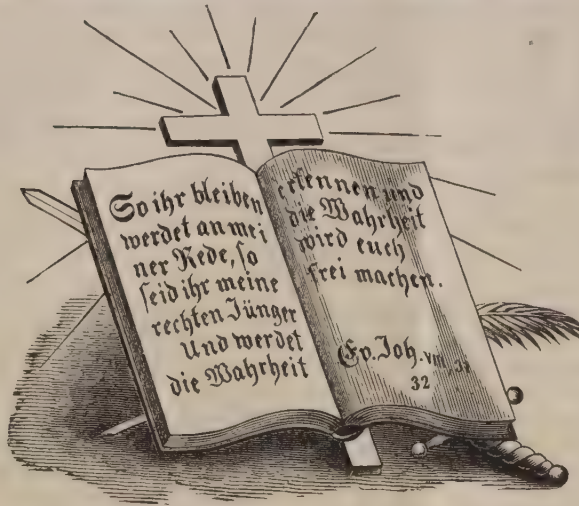 So ihr bleiben
werdet an mei
ner Rede, so
seid ihr meine
rechten Jünger
Und werdet
die Wahrheit
erkennen, und
die Wahrheit
wird euch
frei machen.
Ev. Joh. VIII. 31
32